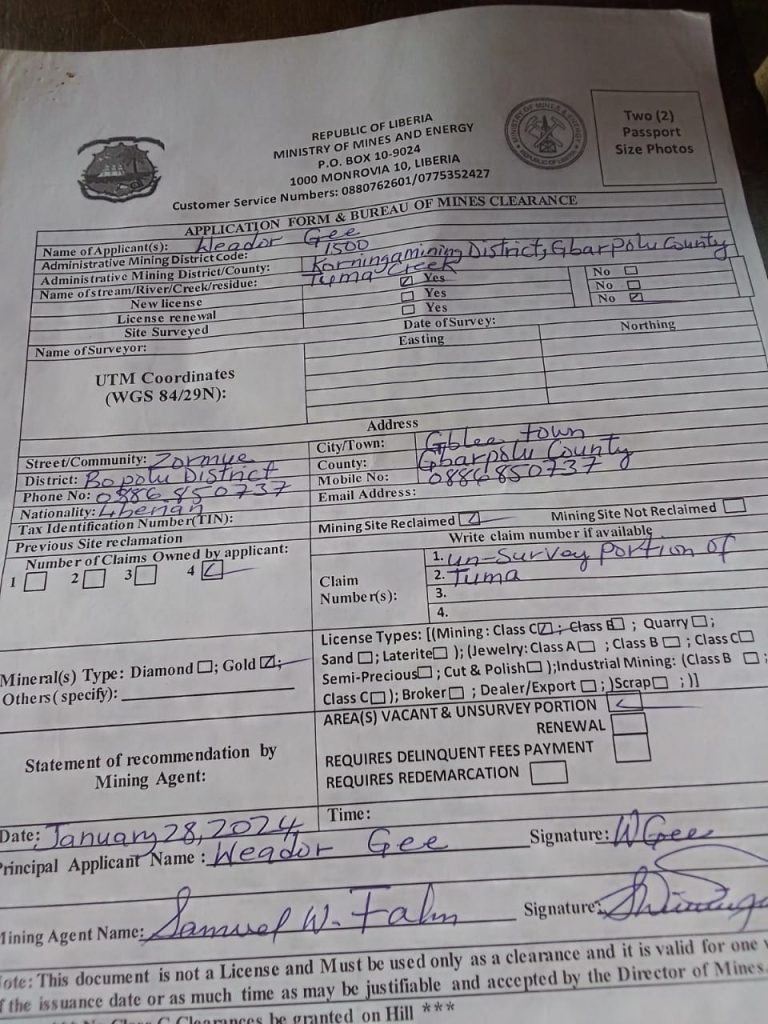 REPUBLIC OF LIBERIA
MINISTRY OF MINES AND ENERGY
P.O. BOX 10-9024
1000 MONROVIA 10, LIBERIA
Customer Service Numbers: 0880762601/0775352427
MINISTRY OF MINES & ENERGY
REPUBLIC OF LIBERIA
Two (2)
Passport
Size Photos
APPLICATION FORM & BUREAU OF MINES CLEARANCE
Name of Applicant(s): Weador Gee
Administrative Mining District Code: 1500
Administrative Mining District/County: Korninga mining District, Gbarpolu County
Name of stream/River/Creek/residue: Tuma Creek
New license ☑ Yes No ☐
License renewal ☐ Yes No ☐
Site Surveyed ☐ Yes No ☑
Name of Surveyor: Date of Survey:
UTM Coordinates
(WGS 84/29N):
Easting Northing
Address
Street/Community: Zormue City/Town: Gblee town
District: Bopolu District County: Gbarpolu County
Phone No: 0886850737 Mobile No: 0886850737
Nationality: Liberian Email Address:
Tax Identification Number(TIN):
Previous Site reclamation Mining Site Reclaimed ☑ Mining Site Not Reclaimed ☐
Number of Claims Owned by applicant: Write claim number if available
1 ☐ 2 ☐ 3 ☐ 4 ☑
Claim
Number(s):
1. un-Survey portion of
2. Tuma
3.
4.
Mineral(s) Type: Diamond ☐; Gold ☑;
Others( specify):
License Types: [(Mining: Class C ☑; Class B ☐ ; Quarry ☐ ;
Sand ☐; Laterite ☐ ); (Jewelry: Class A ☐ ; Class B ☐ ; Class C ☐
Semi-Precious ☐ ; Cut & Polish ☐ );Industrial Mining: (Class B ☐ ;
Class C ☐ ); Broker ☐ ; Dealer/Export ☐ ; )Scrap ☐ ; )]
Statement of recommendation by
Mining Agent:
AREA(S) VACANT & UNSURVEY PORTION ☑
RENEWAL ☐
REQUIRES DELINQUENT FEES PAYMENT ☐
REQUIRES REDEMARCATION ☐
Date: January 28, 2024 Time:
Principal Applicant Name : Weador Gee Signature: WGee
Mining Agent Name: Samuel W. Signature:
Note: This document is not a License and Must be used only as a clearance and it is valid for one
of the issuance date or as much time as may be justifiable and accepted by the Director of Mines.
No Class C Clearances be granted on Hill ***